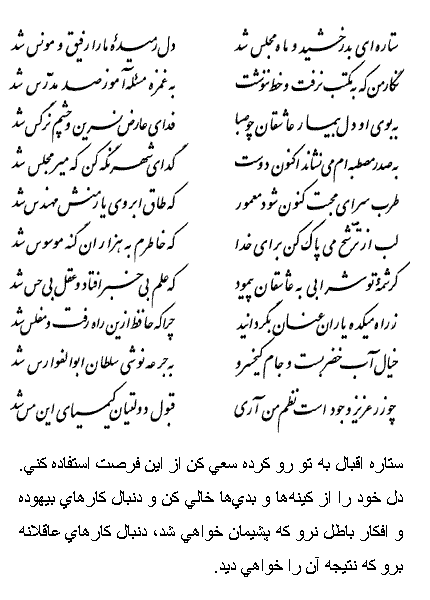 ستاره‌ای بدرخشید و ماه مجلس شد دل رمیدهٔ ما را رفیق و مونس شد
نگار من که به مکتب نرفت و خط ننوشت به غمزه مسئله‌آموز صد مدرس شد
به بوی او دل بیمار عاشقان چو صبا فدای عارض نسرین و چشم نرگس شد
به صدر مصطبه‌ام می‌نشاند اکنون دوست گدای شهر نگه کن که میر مجلس شد
طرب سرای محبت کنون شود معمور که طاق ابروی یار منش مهندس شد
لب از ترشح می پاک کن برای خدا که خاطرم به هزاران گنه موسوس شد
کرشمهٔ تو شرابی به عاشقان پیمود که علم بی‌خبر افتاد و عقل بی‌حس شد
ز راه میکده یاران عنان بگردانید چرا که حافظ ازین راه رفت و مفلس شد
خیال آب خضر بست و جام کیخسرو به جرعه نوشی سلطان ابوالفوارس شد
چو زر عزیز وجود است نظم من آری قبول دولتیان کیمیای این مس شد
ستاره اقبال به تو رو کرده سعي کن از اين فرصت استفاده کني.
دل خود را از کينه‌ها و بدي‌ها خالي کن و دنبال کارهاي بيهوده
و افکار باطل نرو که پشيمان خواهي شد، دنبال کارهاي عاقلانه
برو که نتيجه آن را خواهي ديد.